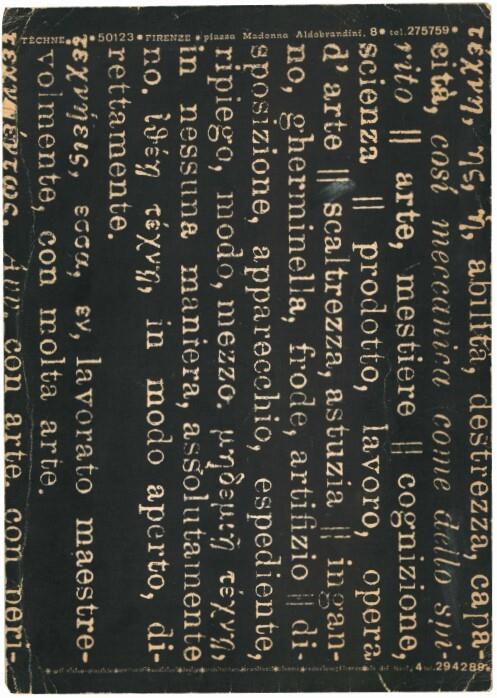 TÈCHNE • 50123 • FIRENZE • piazza Madonna Aldobrandini, 8 • tel. 275759 •
τέχνη, ης, ἡ, abilità, destrezza, capa-
cità, così meccanica come dello spi-
rito || arte, mestiere || cognizione,
scienza || prodotto, lavoro, opera
d'arte || scaltrezza, astuzia || ingan-
no, gherminella, frode, artifizio || di-
sposizione, apparecchio, espediente,
ripiego, modo, mezzo. μηδεμιῇ τέχνῃ,
in nessuna maniera, assolutamente
no. ἰθέῃ τέχνῃ, in modo aperto, di-
rettamente.
τεχνήεις, εσσα, εν, lavorato maestre-
volmente, con molta arte.
Avv. con arte, con peri-
4 294289